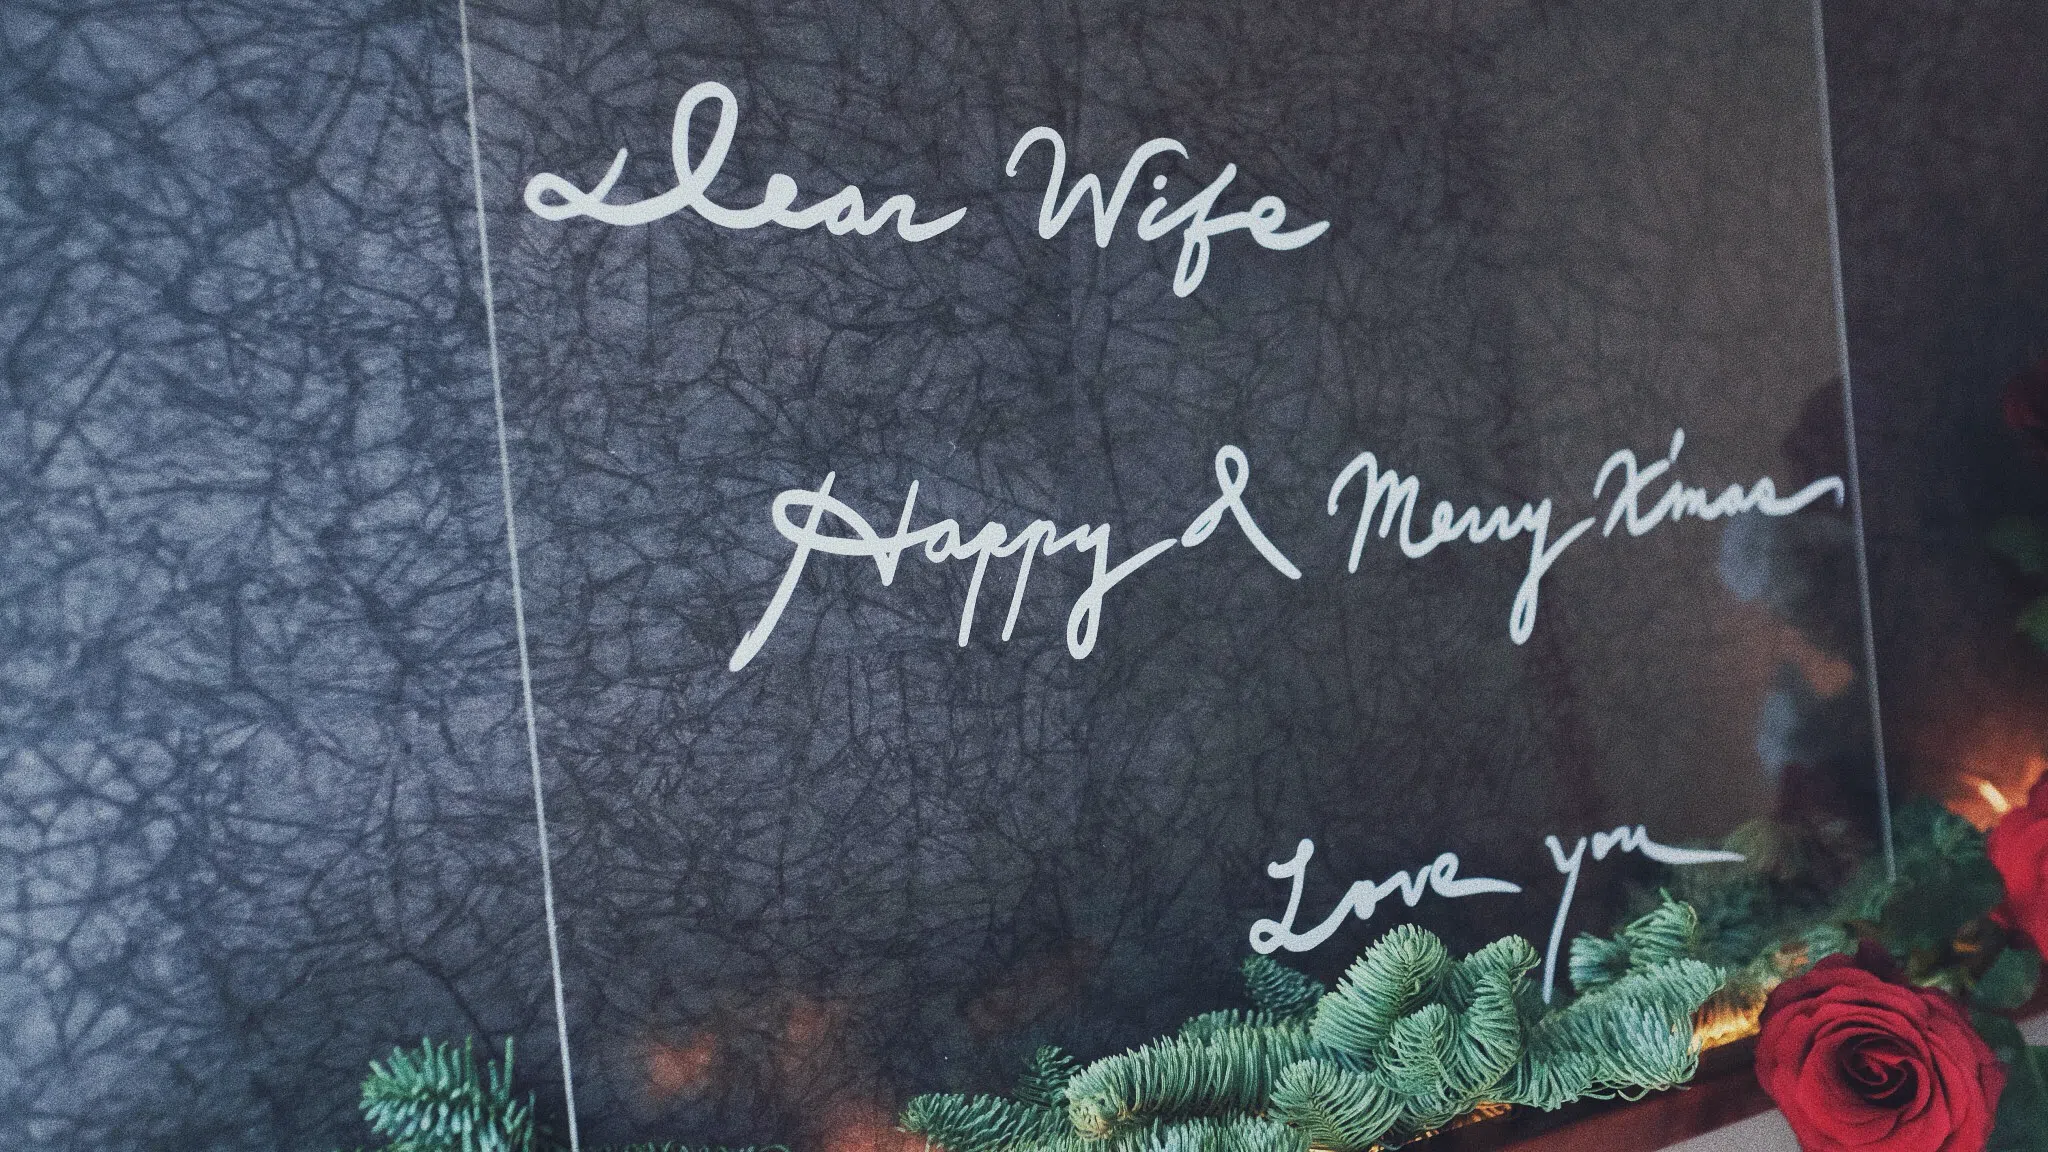 Dear Wife
Happy & Merry X'mas
Love you